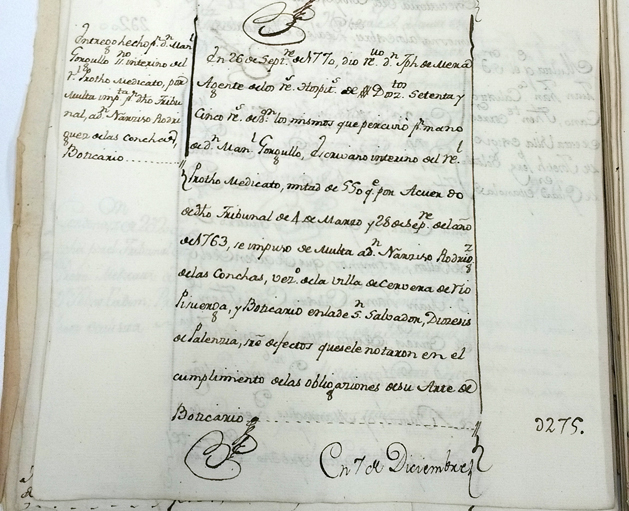 Entrego hecho pr. dn. Manl.
Gorgullo Sno. interino del
Rl. Protho Medicato, por
Multa impta. pr. dho Tribu-
nal, a dn. Narziso Rodri-
guez de las Conchas,
Boticario
En 26 de Septre. de 1770, dio reuo. dn. Jph. de Mena
Agente de los Rs. Hospits. de Settenta y
Cinco rs. de vn. los mismos que percivió pr. mano
de dn. Manl. Gorgullo, Escrivano interino del Rl.
Protho Medicato, mitad de 550 qe. por Acuerdo
de dho Tribunal de 4 de Marzo, y 28 de Sepre. del año
de 1763, se impuso de Multa a dn. Narziso Rodrigz.
de las Conchas, vezo. de la villa de Cervera de Rio
Pisuerga, y Boticario en la de Sn. Salvador, Diozesis
de Palenzia, sre. defectos que se le notaron en el
cumplimiento de las obligaziones de su Arte de
Boticario
275.
En 7 de Diciembre